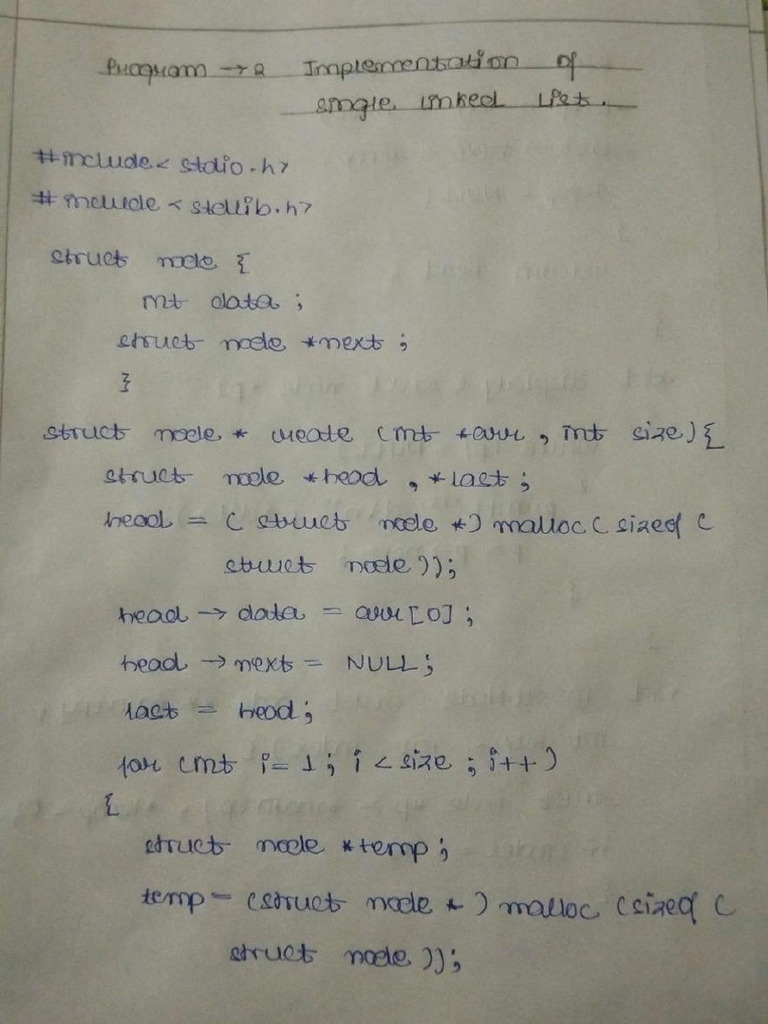 Program → 2 Implementation of
single linked list.
#include< stdio.h>
# include < stdlib.h>
struct node {
int data ;
struct node *next ;
}
struct node * create (int *arr , int size) {
struct node *head , *last ;
head = ( struct node *) malloc ( sizeof (
struct node ));
head → data = arr [0] ;
head → next = NULL ;
last = head ;
for (int i= 1 ; i < size ; i++ )
{
struct node *temp ;
temp = (struct node * ) malloc (sizeof (
struct node )) ;